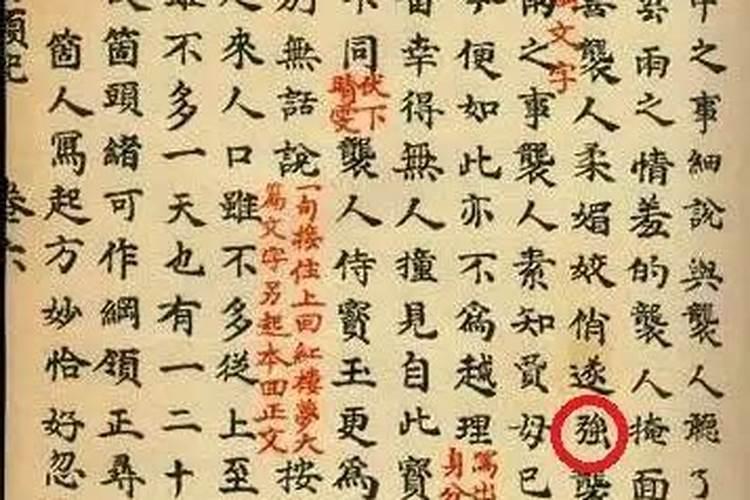 中之事細說與襲人聽了
雲雨之情羞的襲人掩面
喜襲人柔媚姣俏遂強襲
文字
雨之事襲人素知賈母已
便如此亦不為越理
寫出
身分
幸得無人撞見自此寶
不同
伏下
晴雯
襲人侍寶玉更為
別無話說
一句接住上回紅樓夢大
篇文字另起本回正文
按
來人口雖不多從上至
雖不多一天也有一二十
箇頭緒可作綱領正尋
箇人寫起方妙恰好忽
卷六